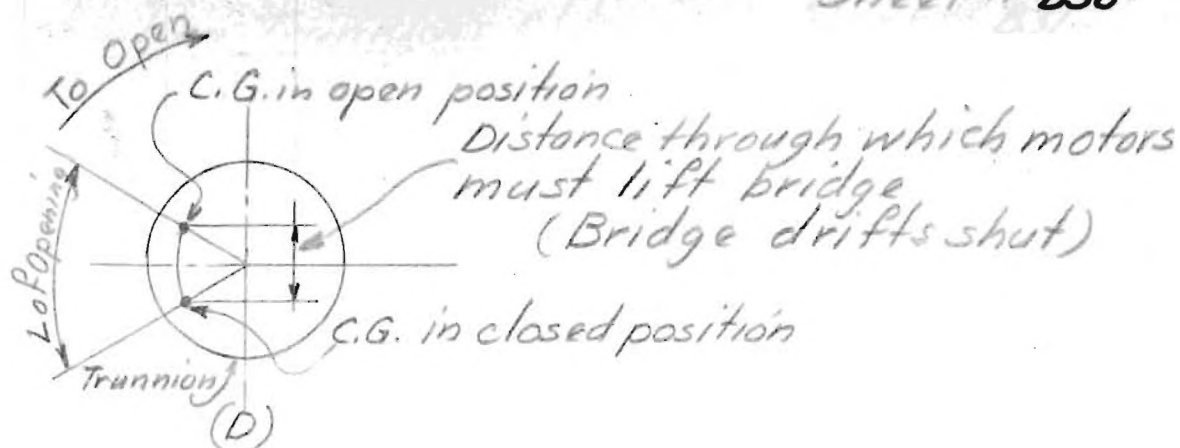 Sheet
To Open
C.G. in open position
Distance through which motors
must lift bridge
(Bridge drifts shut)
L of Opening
C.G. in closed position
Trunnion
(D)